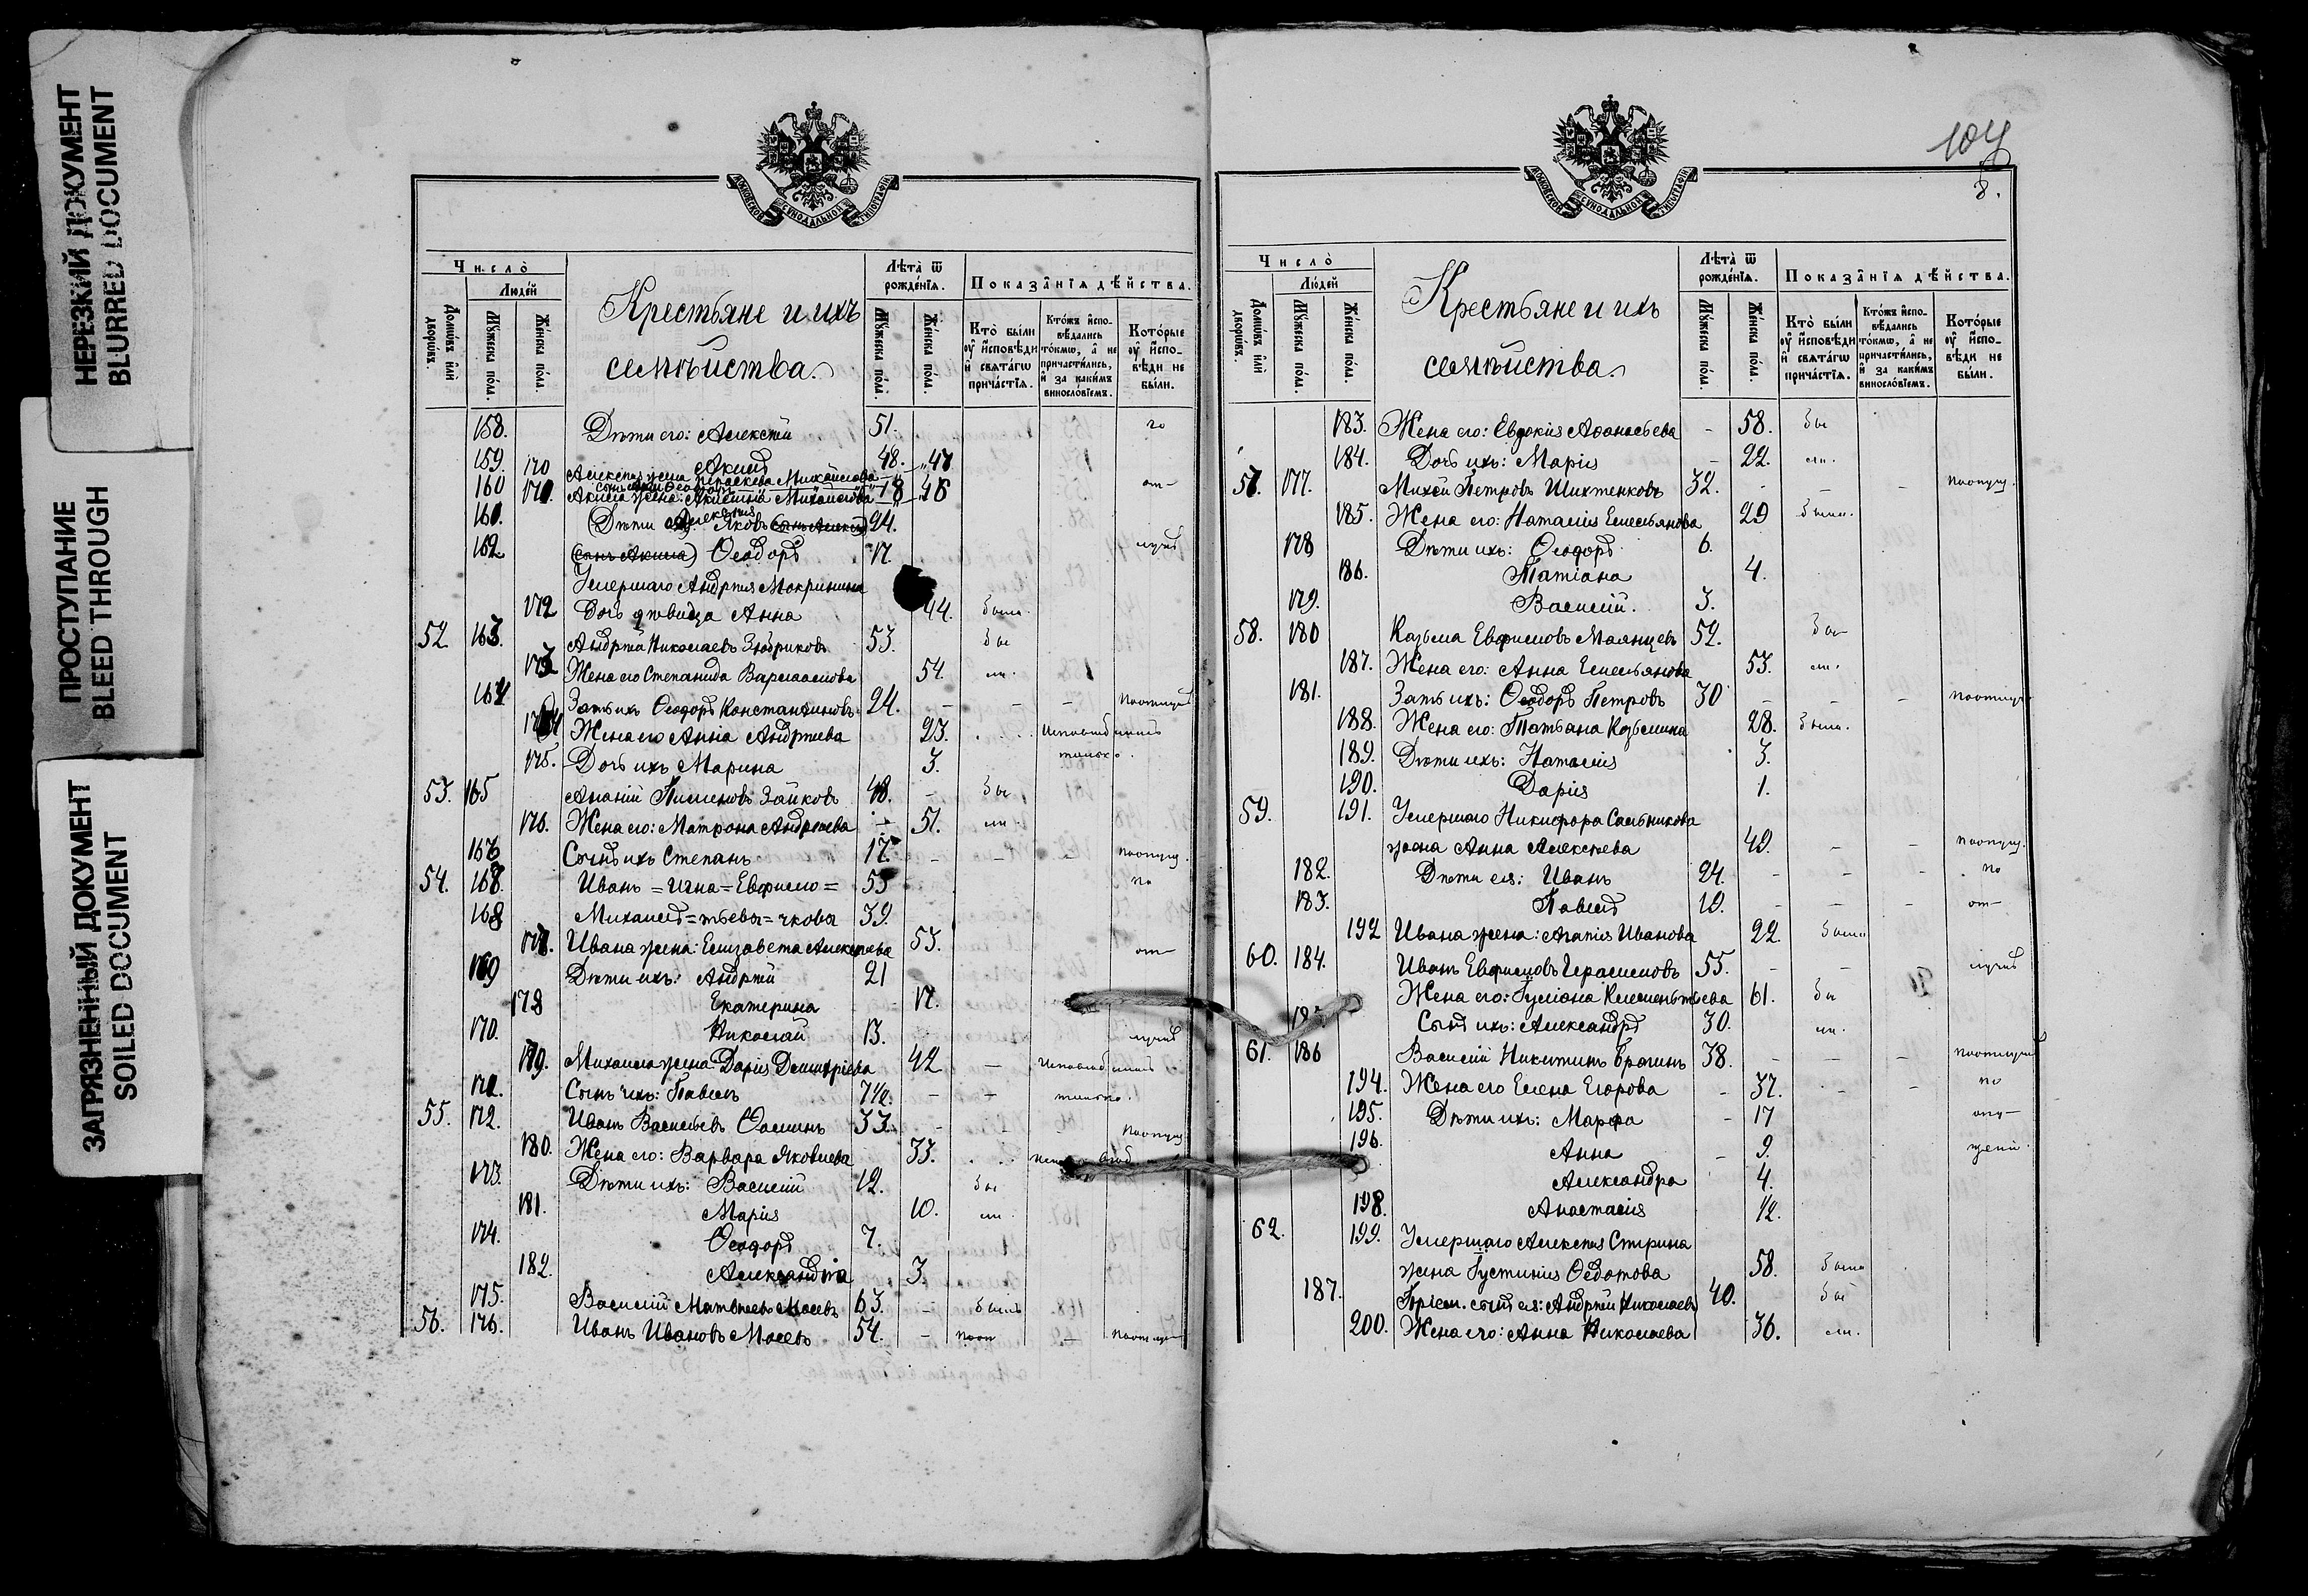 НЕРЕЗКИЙ ДОКУМЕНТ
BLURRED DOCUMENT
ПРОСТУПАНИЕ
BLEED THROUGH
ЗАГРЯЗНЕННЫЙ ДОКУМЕНТ
SOILED DOCUMENT
МОСКОВСКОЙ СУНОДАЛЬНОЙ ТИПОГРАФІИ
Число̀
Людей
Домѡвъ и҆лѝ дворѡвъ.
Мꙋжеска пола.
Женска пола.
Крестьяне и ихъ
семѣйства.
Лѣта̀ ѿ рожденїѧ.
Мꙋжеска пола.
Женска пола.
Показанїѧ дѣйства.
Кто̀ были ᲂу҆ и҆сповѣди и҆ свѧтагѡ причастїѧ.
Ктожъ и҆сповѣдались токмѡ, а҆ не причастились, и҆ за какимъ винословїемъ.
Которые ᲂу҆ и҆сповѣди не были.
158. Дѣти его: Алексѣй 51. го
159. Акимъ 48.
170 Алексѣя жена Параскева Михайлова 47
160 18
171. Акима жена: Акилина Михайлова 46 от-
160. Дѣти Алексѣя Яковъ 24.
162 (сынъ Акима) Ѳеодоръ 17. лучкѣ
Умершаго Андрея Мокринина
172 дочь дѣвица Анна 44. была.
52 163. Андрей Николаевъ Зюбриковъ 53. бы
173 Жена его Степанида Варлаамова 54. ли.
164 Зять ихъ Ѳеодоръ Константиновъ 24. - - -
174 Жена его Анна Андреева 23. исповѣдались
175. Дочь ихъ Марина 3. только.
53. 165 Ананій Пименовъ Зайковъ 48. - бы
176. Жена его: Матрона Андреева - 51. ли.
166 Сынъ ихъ Степанъ 17. - - - поотлуч.
54. 168. Иванъ = Игна = Ефимо = 55 по
168 Михаилъ = тьевы = чковы 39.
177. Ивана жена: Елизавета Алексѣева 53. от-
169 Дѣти ихъ: Андрей 21
178 Екатерина 17.
170. Николай 13. лучкѣ
179. Михаила жена Дарія Димитріева 42 - исповѣдались
171. Сынъ ихъ: Павелъ 7½. - - только.
55. 172. Иванъ Васильевъ Ѳоминъ 33. - поотлуч
180. Жена его: Варвара Яковлева 33.
173. Дѣти ихъ: Василій 12. бы
181. Марія 10. ли.
174. Ѳеодоръ 7.
182. Александра 3.
175. Василій Матвѣевъ Мосевъ 63. - былъ
56. 176. Иванъ Ивановъ Мосевъ 54. - - поотлуч
104
8.
МОСКОВСКОЙ СУНОДАЛЬНОЙ ТИПОГРАФІИ
Число̀
Людей
Домѡвъ и҆лѝ дворѡвъ.
Мꙋжеска пола.
Женска пола.
Крестьяне и ихъ
семѣйства.
Лѣта̀ ѿ рожденїѧ.
Мꙋжеска пола.
Женска пола.
Показанїѧ дѣйства.
Кто̀ были ᲂу҆ и҆сповѣди и҆ свѧтагѡ причастїѧ.
Ктожъ и҆сповѣдались токмѡ, а҆ не причастились, и҆ за какимъ винословїемъ.
Которые ᲂу҆ и҆сповѣди не были.
183. Жена его: Евдокія Аѳанасьева - 58. бы
184. Дочь ихъ: Марія - 22. ли.
57. 177. Михей Петровъ Шихтенковъ 32. - - - поотлуч.
185. Жена его: Наталія Емельянова 29 была.
178 Дѣти ихъ: Ѳеодоръ 6.
186. Татіана 4.
179. Василій. 3.
58. 180 Козьма Ефимовъ Маянцевъ 52. бы
187. Жена его: Анна Емельянова 53. ли.
181. Зять ихъ: Ѳеодоръ Петровъ 30 - - - поотлуч
188. Жена его: Татьяна Козьмина 28. была.
189. Дѣти ихъ: Наталія 3.
190. Дарія 1.
59. 191. Умершаго Никифора Сальникова
жена Анна Алексѣева 49. - - поотлуч.
182. Дѣти ея: Иванъ 24. - - - по
183. Павелъ 19. - - - от-
192 Ивана жена: Анна Иванова 22. была
60. 184. Иванъ Ефимовъ Герасимовъ 55. - - лучкѣ
Жена его: Іуліана Клементьева 61. бы
Сынъ ихъ: Александръ 30. ли.
61. 186 Василій Никитинъ Брагинъ 38. - - - поотлучкѣ
194. Жена его Елена Егорова - 37. - - по
195. Дѣти ихъ: Марѳа - 17
196. Анна - 9.
Александра 4.
198. Анастасія ½.
62. 199. Умершаго Алексѣя Стирина
жена Іустинія Ѳедотова 58. была
187. Пріем. сынъ ея: Андрей Николаевъ 40. бы
200. Жена его: Анна Николаева 36. ли.